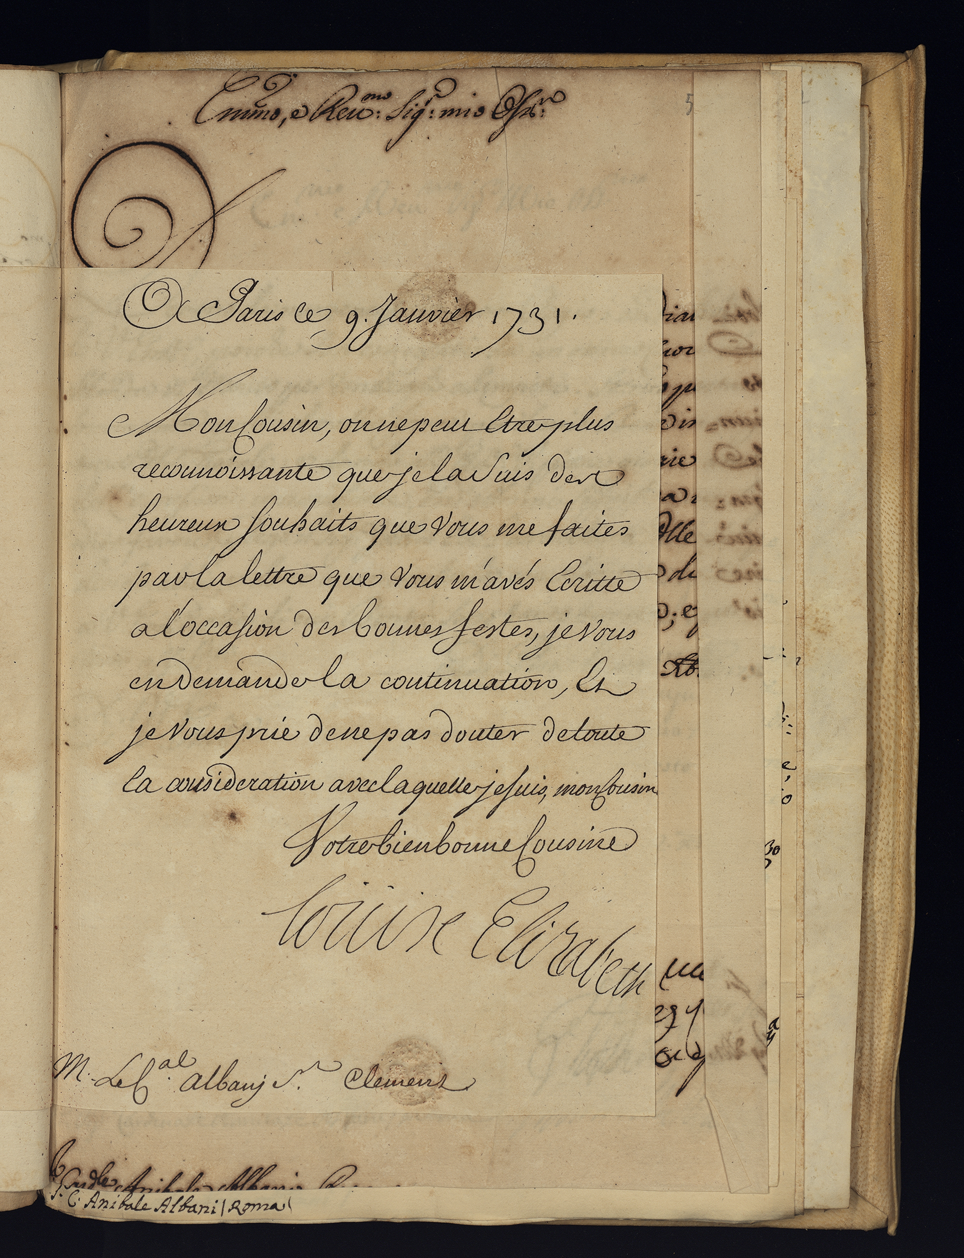 Em̃mo, e Reu:mo Sig:r mio Oss:mo
5
A Paris le 9. Janvier 1731.
Mon Cousin, on ne peut Etre plus
reconnoissante que je la Suis des
heureux Souhaits que Vous me faites
par la lettre que Vous m'avés Ecritte
a l'occasion des bonnes festes, je Vous
en demande la continuation, Et
je Vous prie de ne pas douter de toute
la consideration avec laquelle je suis, mon Cousin
Votre bien bonne Cousine
Louise Elizabeth
M. Le C.al albanj St. Clement
C. Anibale Albani (Roma)